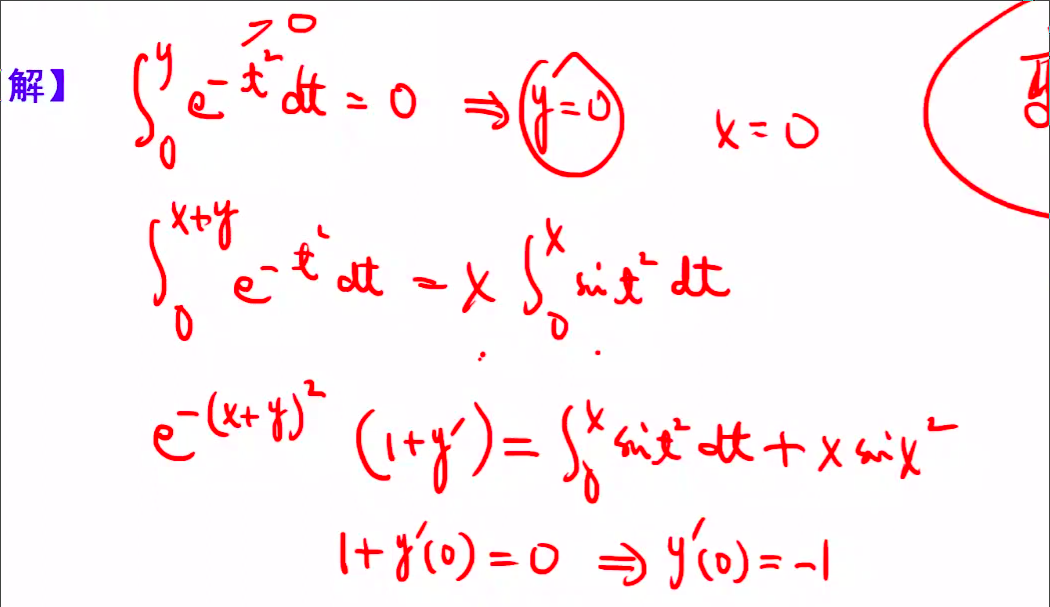 解】 ∫₀^y e^{-t²} dt = 0 ⇒ y = 0 x = 0
> 0
∫₀^{x+y} e^{-t²} dt = x ∫₀^x sin t² dt
e^{-(x+y)²} (1+y′) = ∫₀^x sin t² dt + x sin x²
1+y′(0) = 0 ⇒ y′(0) = -1